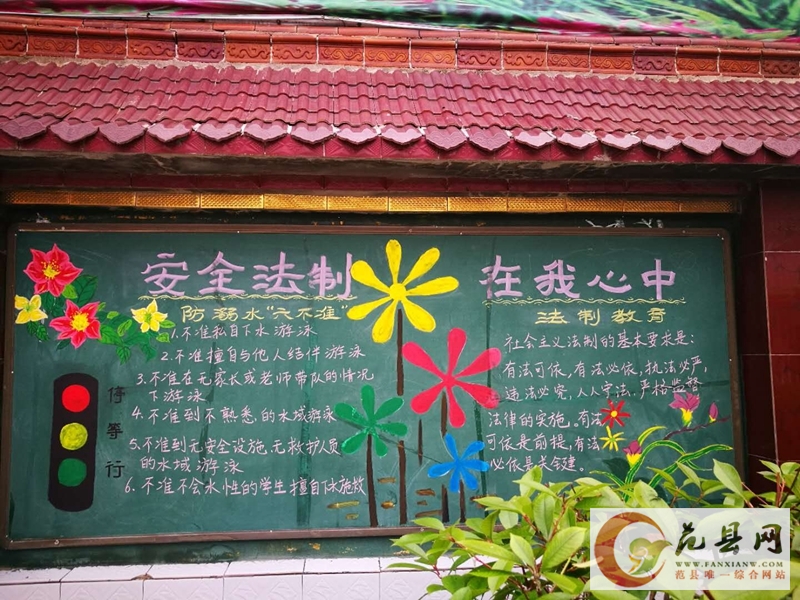 安全法制 在我心中
防溺水“六不准”
1.不准私自下水游泳
2.不准擅自与他人结伴游泳
3.不准在无家长或老师带队的情况
下游泳
4.不准到不熟悉的水域游泳
5.不准到无安全设施、无救护人员
的水域游泳
6.不准不会水性的学生擅自下水施救
停
等
行
法制教育
社会主义法制的基本要求是:
有法可依,有法必依,执法必严,
违法必究,人人守法,严格监督
法律的实施。有法
可依是前提,有法
必依是关键。
范县网
WWW.FANXIANW.COM
范县唯一综合网站